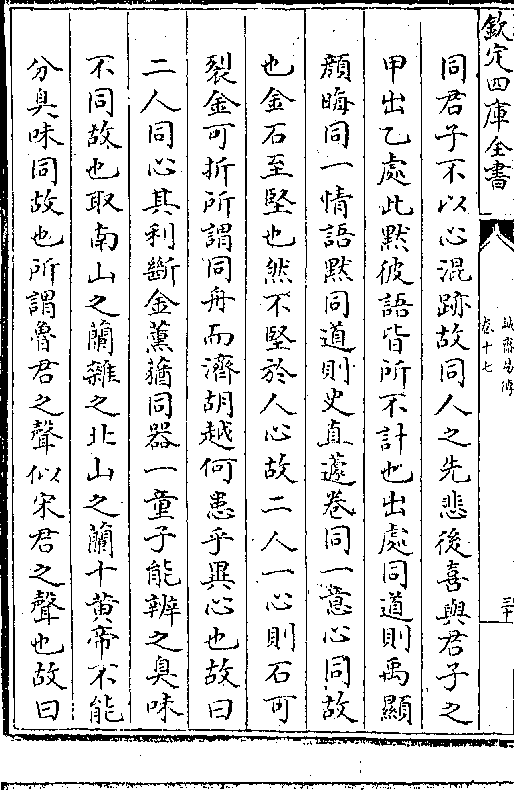 欽定四庫全書
誠齋易傳
卷十七
三十
同君子不以心混跡故同人之先悲後喜與君子之
甲出乙處此黙彼語皆所不計也出處同道則禹顯
顔晦同一情語黙同道則史直蘧卷同一意心同故
也金石至堅也然不堅於人心故二人一心則石可
裂金可折所謂同舟而濟胡越何患乎異心也故曰
二人同心其利斷金薰蕕同器一童子能辨之臭味
不同故也取南山之蘭雜之北山之蘭十黄帝不能
分臭味同故也所謂魯君之聲似宋君之聲也故曰